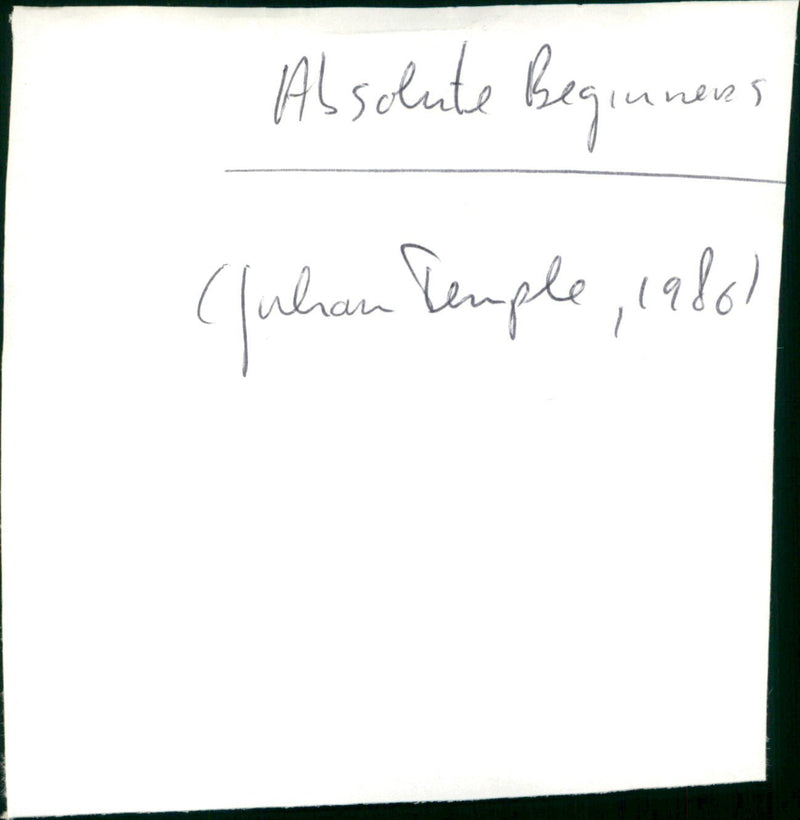 Absolute Beginners
(Julian Temple, 1986)